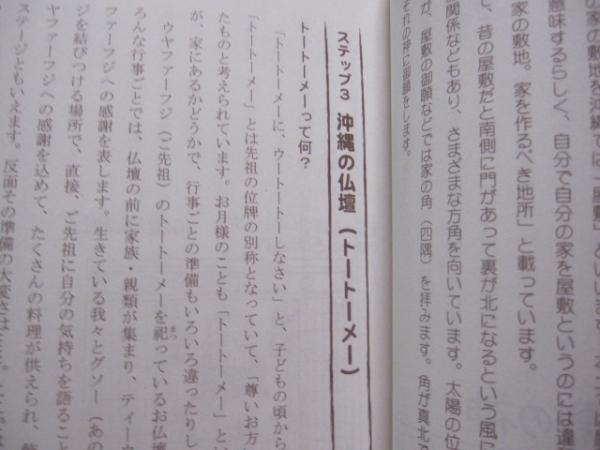 家の敷地を沖縄では「屋敷」と
意味するらしく、自分で自分の家を屋敷というのには違
家の敷地。家を作るべき地所」と載っています。
し、昔の屋敷だと南側に門があって裏が北になるという風に
関係などもあり、さまざまな方角を向いています。太陽の位
が、屋敷の御願などでは家の角（四隅）を拝みます。角が真北で
それぞれの神に御願をします。
ステップ3 沖縄の仏壇（トートーメー）
トートーメーって何？
「トートーメーに、ウートートーしなさい」と、子どもの頃から
「トートーメー」とは先祖の位牌の別称となっていて、「尊いお方」
たものと考えられています。お月様のことも「トートーメー」とい
が、家にあるかどうかで、行事ごとの準備もいろいろ違ったりし
ウヤファーフジ（ご先祖）のトートーメーを祀っているお仏壇
まつ
ろんな行事ごとでは、仏壇の前に家族・親類が集まり、ティーウ
ファーフジへの感謝を表します。生きている我々とグソー（あの
ジを結びつける場所で、直接、ご先祖に自分の気持ちを語ること
ヤファーフジへの感謝を込めて、たくさんの料理が供えられ、飾
ステージともいえます。反面その準備の大変さは